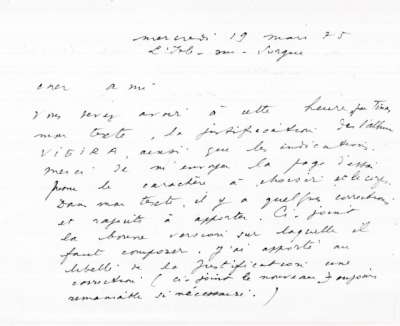 mercredi 19 mars 75
L'Isle-sur-Sorgue
cher ami
Vous devez avoir à cette heure par Tina
mon texte, la justification de l'album
VIEIRA, ainsi que les indications.
merci de m'envoyer la page d'essai
pour le caractère à choisir et le corps.
Dans mon texte, il y a quelques corrections
et rajouts à apporter. Ci-joint
la bonne version sur laquelle il
faut composer. J'ai apporté au
libellé de la justification une
correction (ci-joint le nouveau toujours
remaniable si nécessaire.)